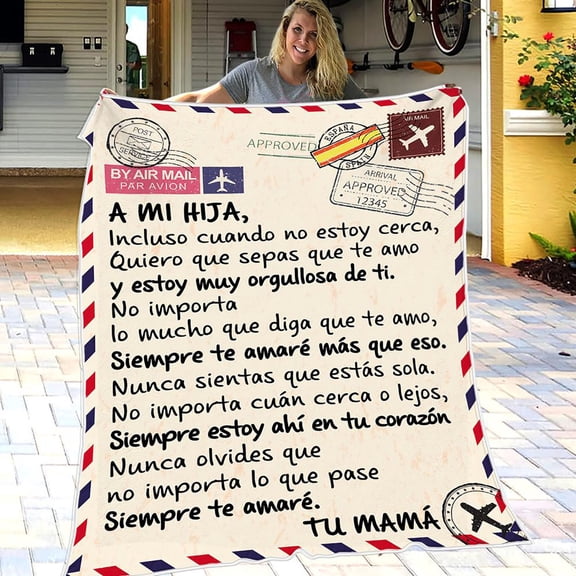 POST
SERVICE
APPROVED
ESPAÑA
SPAIN
VR MAIL
BY AIR MAIL
PAR AVION
ARRIVAL
APPROVED
12345
A MI HIJA,
Incluso cuando no estoy cerca,
Quiero que sepas que te amo
y estoy muy orgullosa de ti.
No importa
lo mucho que diga que te amo,
Siempre te amaré más que eso.
Nunca sientas que estás sola.
No importa cuán cerca o lejos,
Siempre estoy ahí en tu corazón
Nunca olvides que
no importa lo que pase
Siempre te amaré.
TU MAMÁ